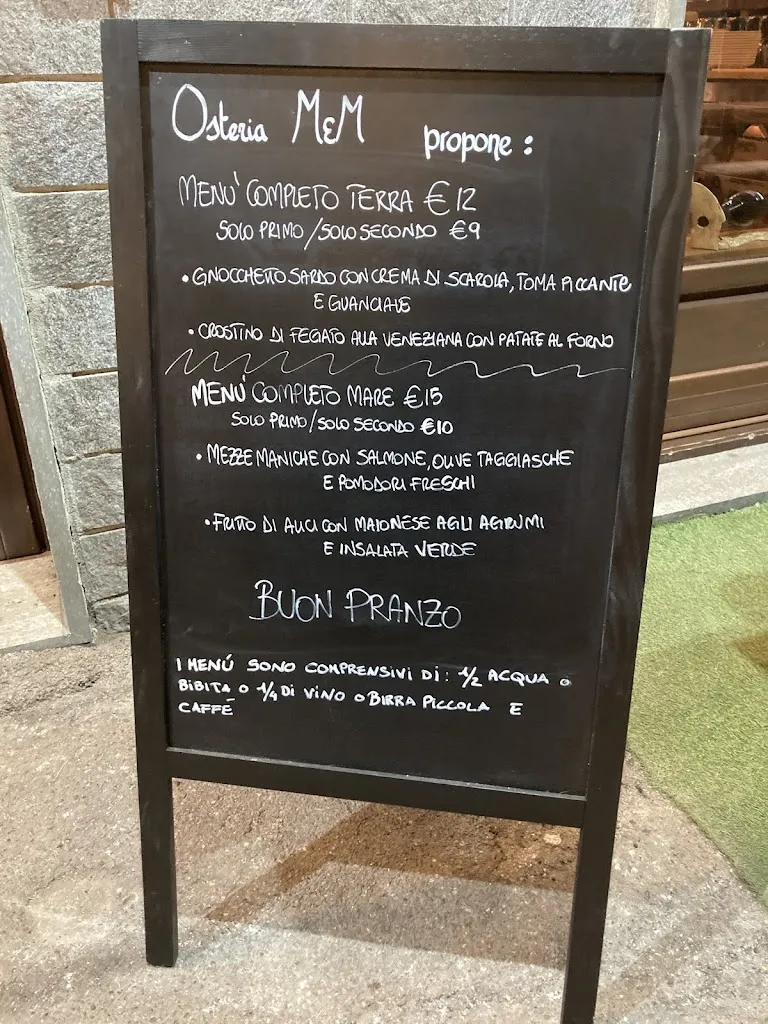 Osteria M&M propone :
MENU' COMPLETO TERRA € 12
SOLO PRIMO / SOLO SECONDO €9
• GNOCCHETTO SARDO CON CREMA DI SCAROLA, TOMA PICCANTE
E GUANCIALE
• CROSTINO DI FEGATO ALLA VENEZIANA CON PATATE AL FORNO
MENU' COMPLETO MARE €15
SOLO PRIMO / SOLO SECONDO €10
• MEZZE MANICHE CON SALMONE, OLIVE TAGGIASCHE
E POMODORI FRESCHI
• FRITTO DI ALICI CON MAIONESE AGLI AGRUMI
E INSALATA VERDE
BUON PRANZO
I MENÚ SONO COMPRENSIVI DI : 1/2 ACQUA O
BIBITA O 1/4 DI VINO O BIRRA PICCOLA E
CAFFÉ